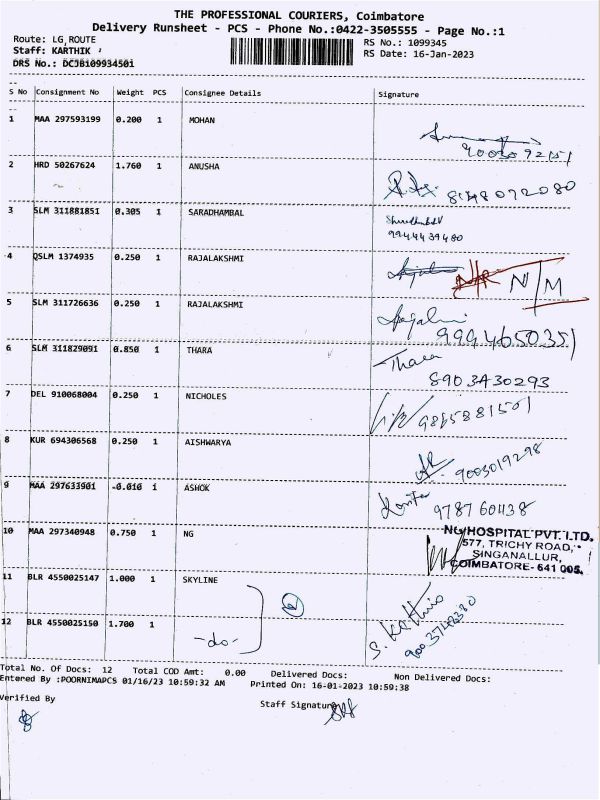 THE PROFESSIONAL COURIERS, Coimbatore
Delivery Runsheet - PCS - Phone No.:0422-3505555 - Page No.:1
Route: LG ROUTE RS No.: 1099345
Staff: KARTHIK RS Date: 16-Jan-2023
DRS No.: DCJB1099934501
S No Consignment No Weight PCS Consignee Details Signature
1 MAA 297593199 0.200 1 MOHAN
2 HRD 50267624 1.760 1 ANUSHA
8148072080
3 SLM 311881851 0.305 1 SARADHAMBAL
9944439480
4 QSLM 1374935 0.250 1 RAJALAKSHMI N/M
5 SLM 311726636 0.250 1 RAJALAKSHMI
9994650351
6 SLM 311829091 0.850 1 THARA Thara
7 DEL 910068004 0.250 1 NICHOLES
9865881501
8 KUR 694306568 0.250 1 AISHWARYA
9003019298
9 MAA 297633901 -0.010 1 ASHOK
10 MAA 297340948 0.750 1 NG
NG HOSPITAL PVT. LTD.
577, TRICHY ROAD,
SINGANALLUR,
COIMBATORE- 641 005.
11 BLR 4550025147 1.000 1 SKYLINE
2
12 BLR 4550025150 1.700 1 -do-
Total No. Of Docs: 12 Total COD Amt: 0.00 Delivered Docs: Non Delivered Docs:
Entered By :POORNIMAPCS 01/16/23 10:59:32 AM Printed On: 16-01-2023 10:59:38
Verified By Staff Signature